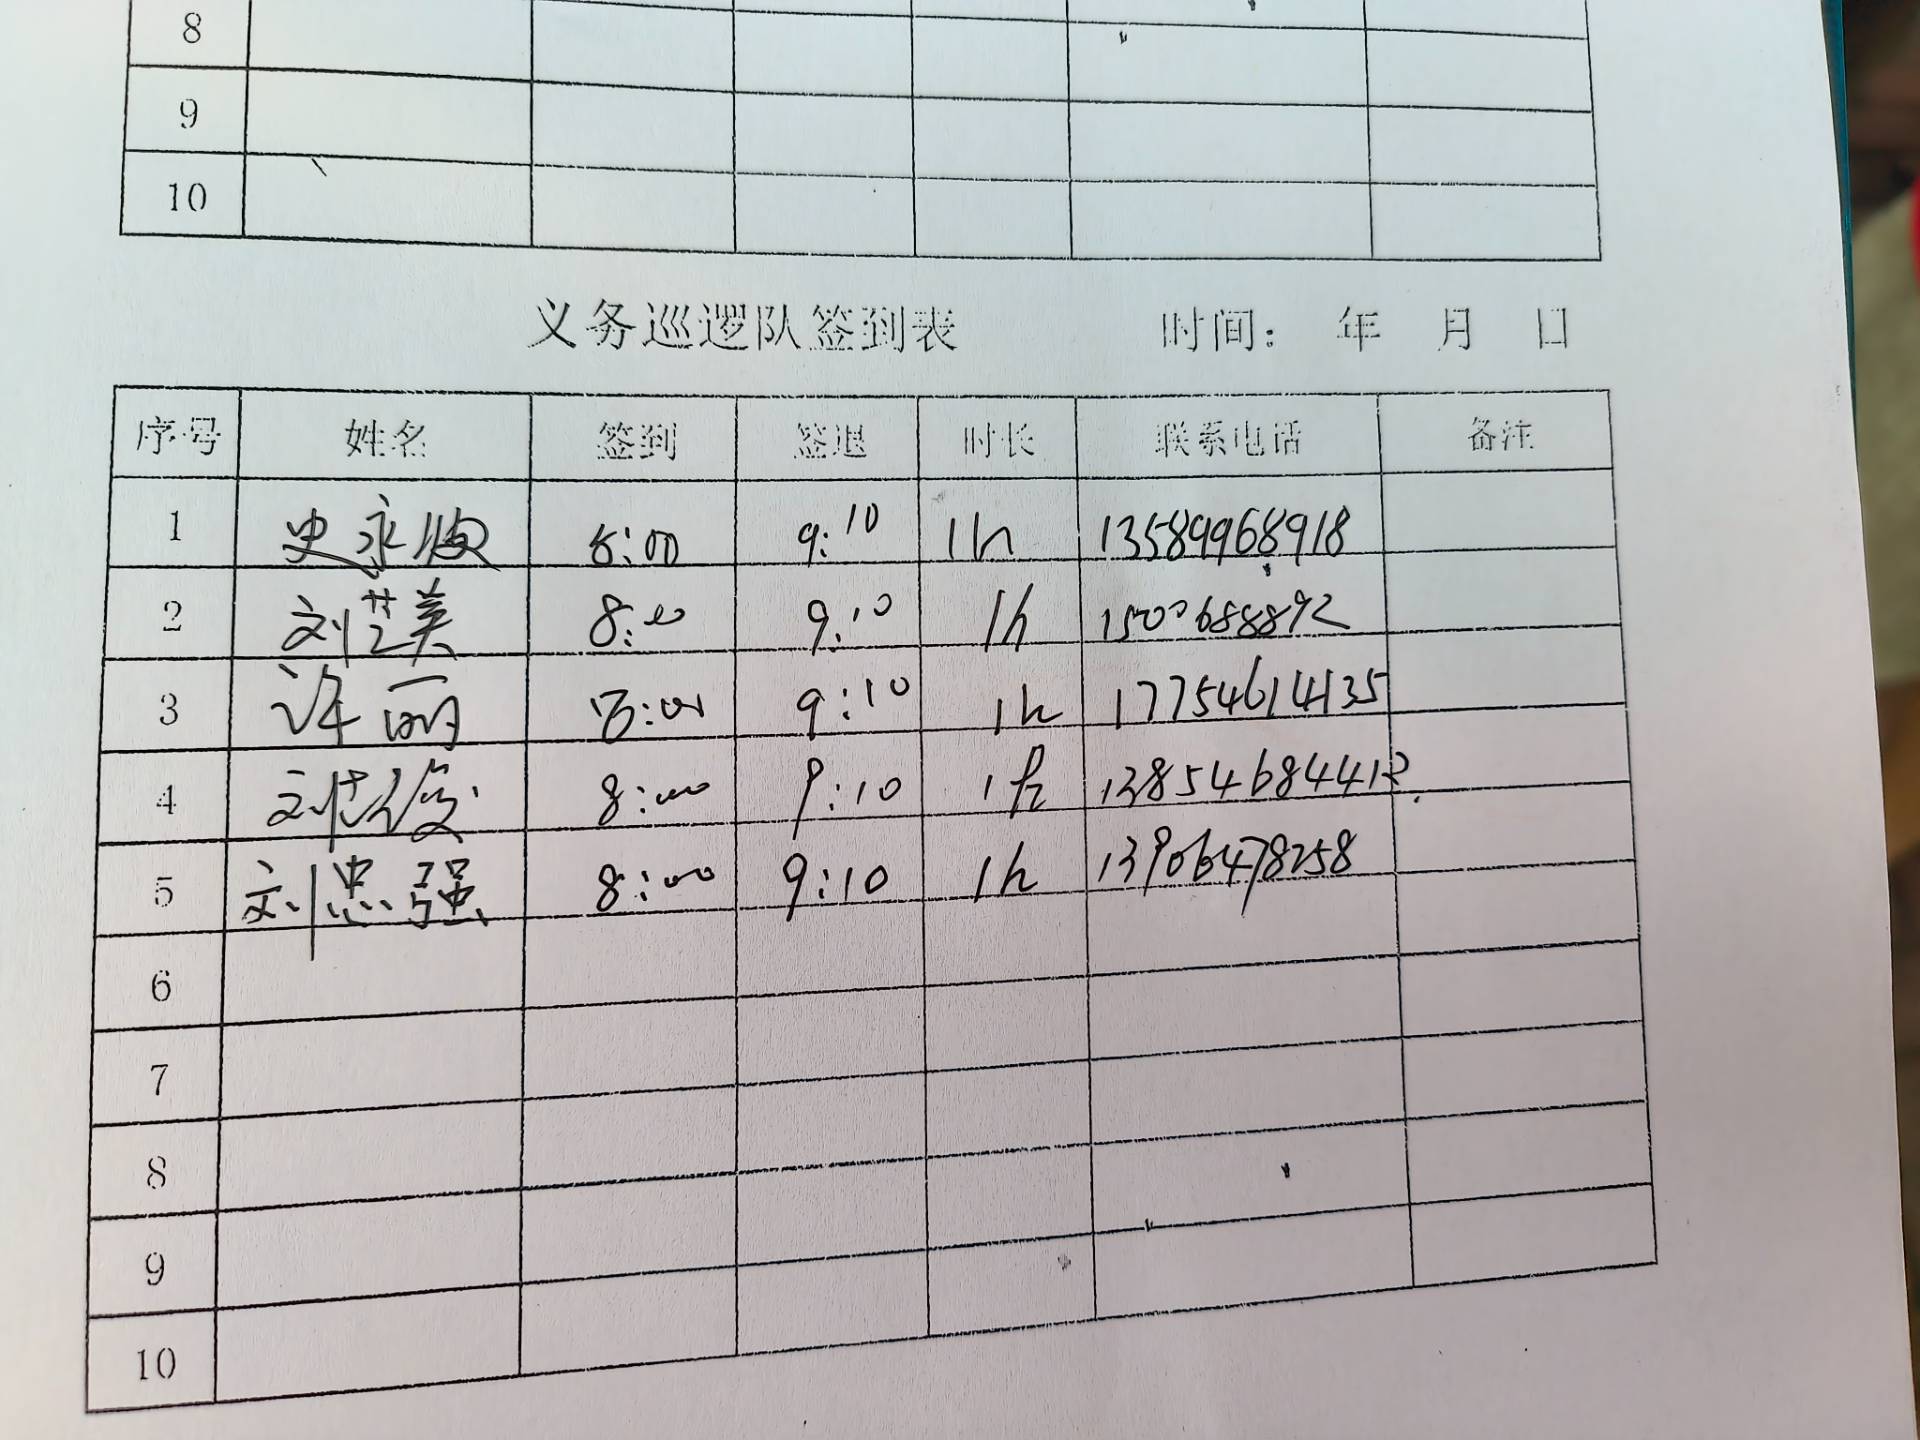 8
9
10
义务巡逻队签到表 时间： 年 月 日
序号 姓名 签到 签退 时长 联系电话 备注
1 史永 8:00 9:10 1h 13589968918
2 刘芝美 8:00 9:10 1h 15006888892
3 许丽 8:00 9:10 1h 17754614135
4 刘 8:00 9:10 1h
5 刘忠强 8:00 9:10 1h 13906478258
6
7
8
9
10